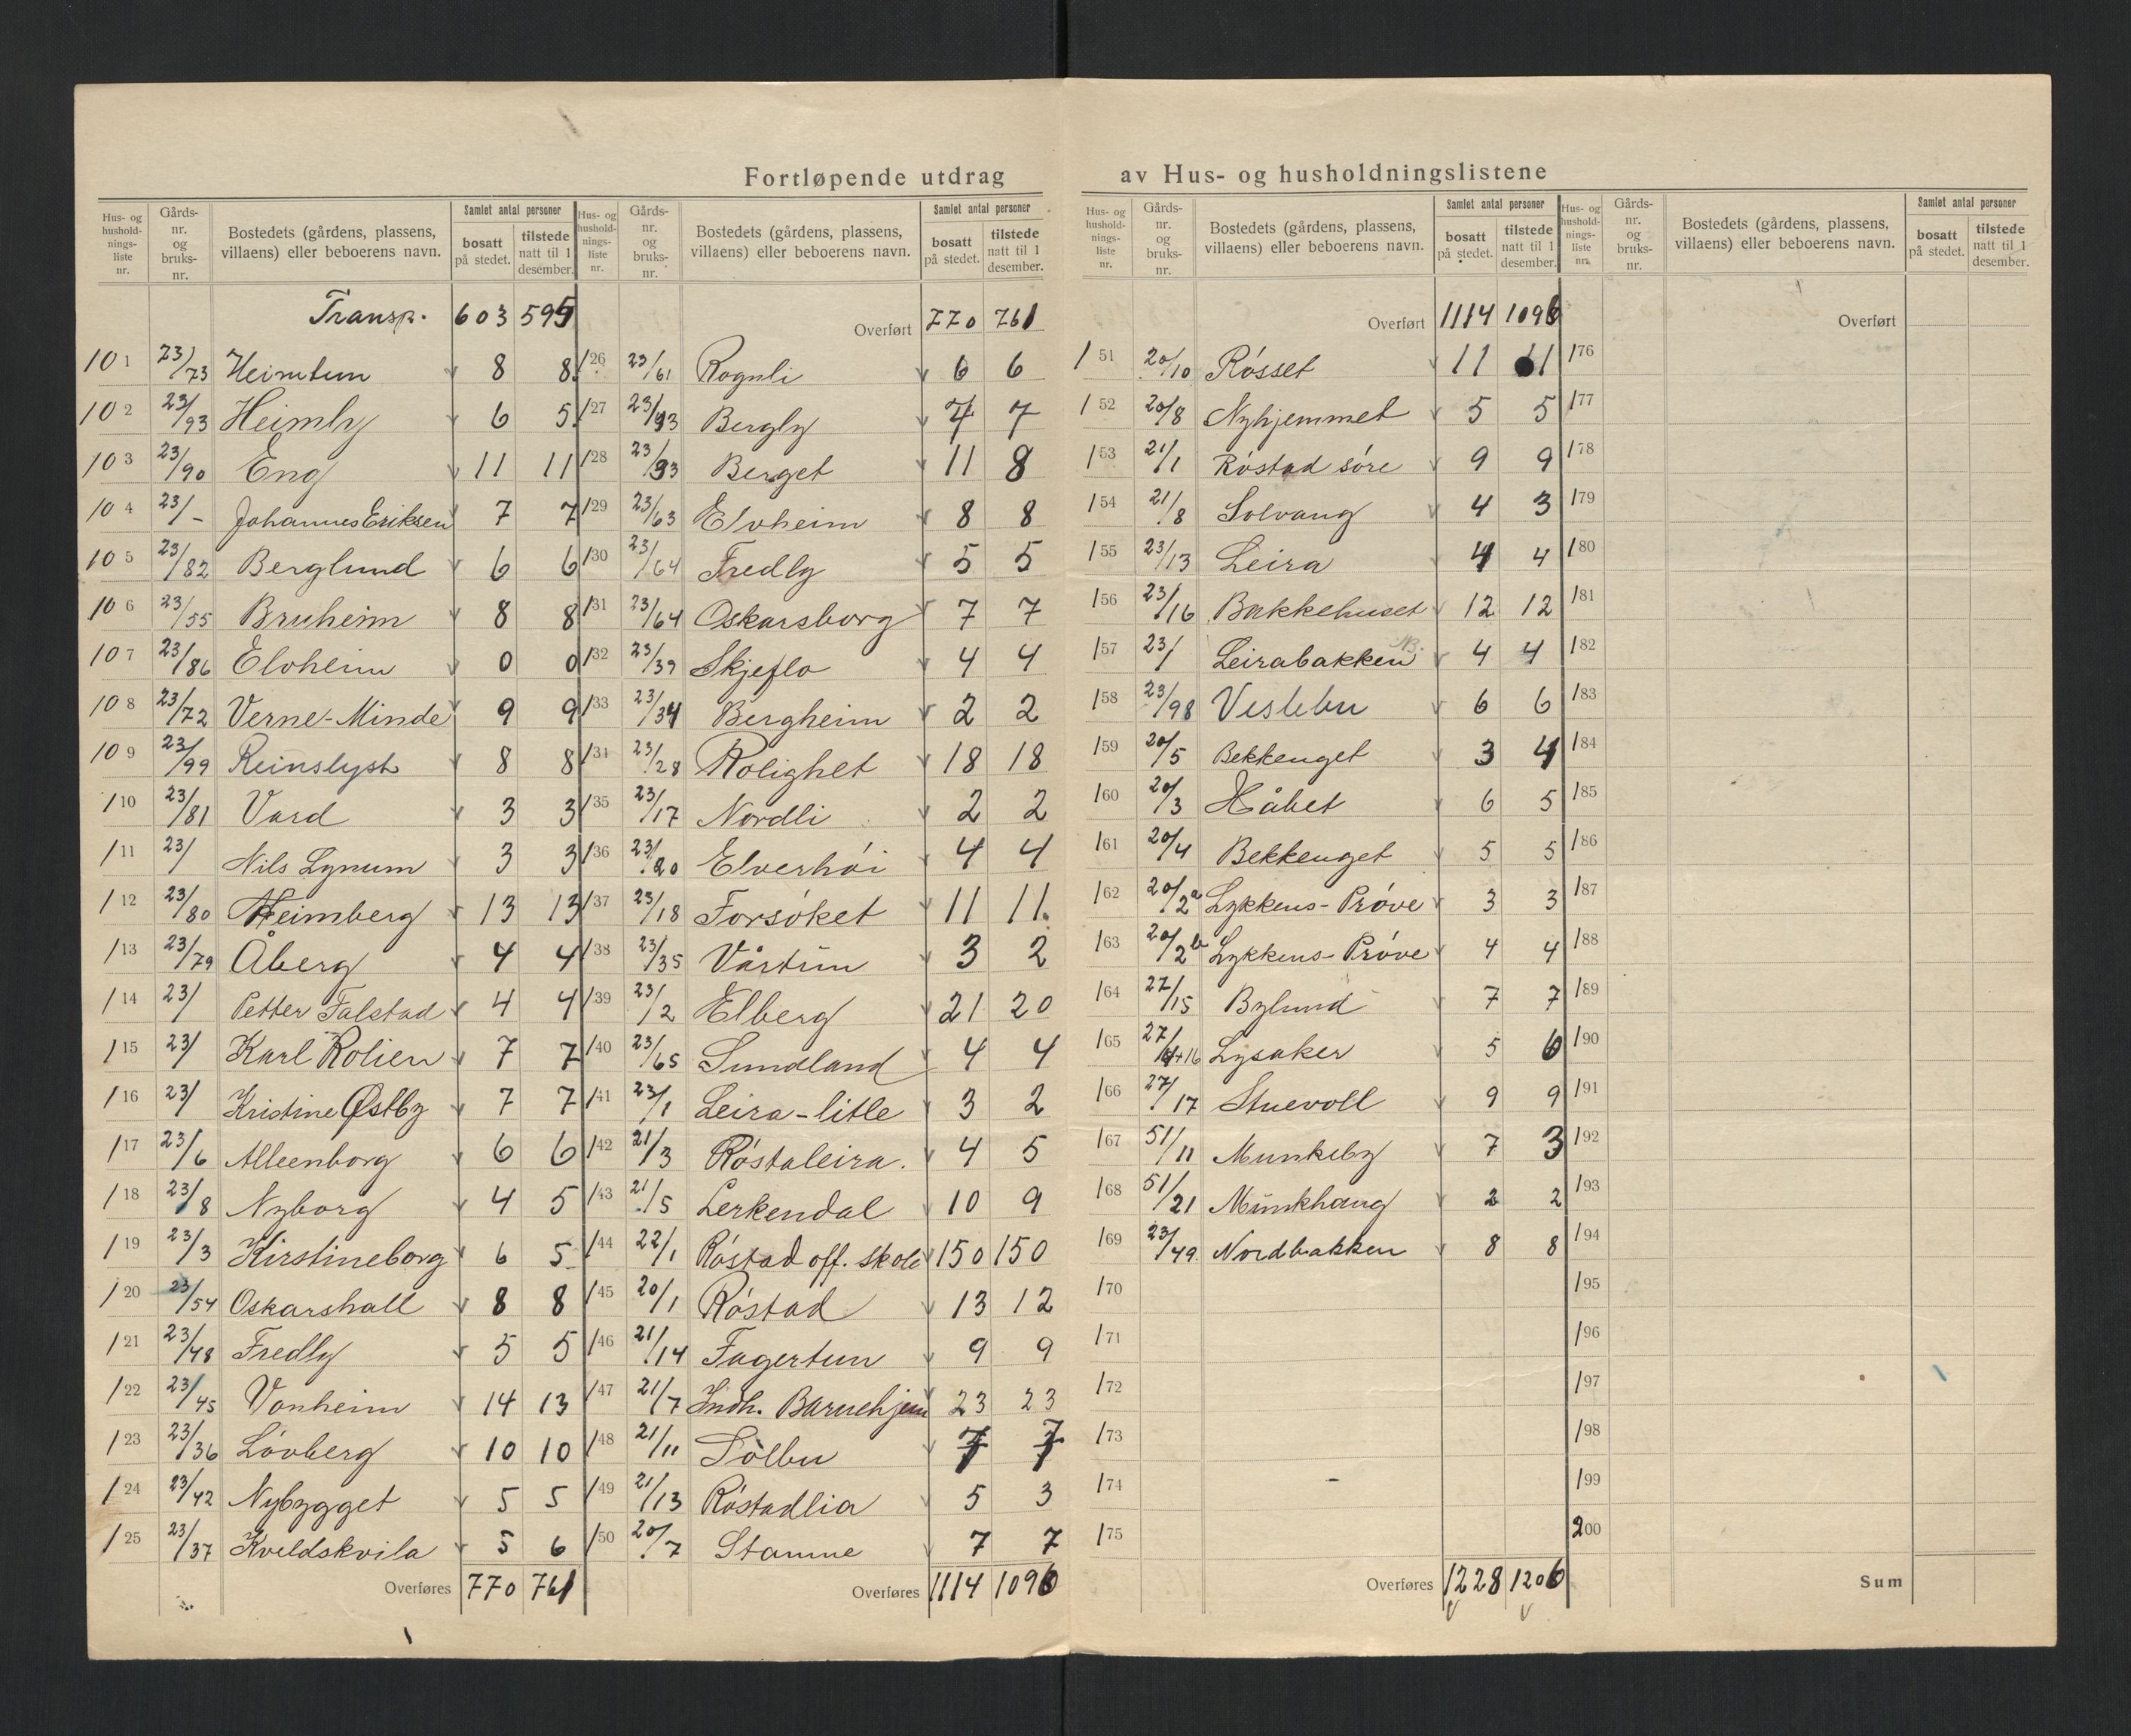 Fortløpende utdrag av Hus- og husholdningslistene
Hus- og husholdningsliste nr. Gårds-nr. og bruks-nr. Bostedets (gårdens, plassens, villaens) eller beboerens navn. Samlet antal personer bosatt på stedet. tilstede natt til 1 desember.
Transp. 603 595
101 23/73 Heimtun 8 8
102 23/93 Heimly 6 5
103 23/90 Eng 11 11
104 23/- Johannes Eriksen 7 7
105 23/82 Berglund 6 6
106 23/55 Bruheim 8 8
107 23/86 Elvheim 0 0
108 23/72 Verne-Minde 9 9
109 23/99 Reinslyst 8 8
110 23/81 Vard 3 3
111 23/ Nils Lynum 3 3
112 23/80 Heimberg 13 13
113 23/79 Åberg 4 4
114 23/ Petter Falstad 4 4
115 23/ Karl Rolien 7 7
116 23/ Kristine Østby 7 7
117 23/6 Alleenborg 6 6
118 23/8 Nyborg 4 5
119 23/3 Kirstineborg 6 5
120 23/54 Oskarshall 8 8
121 23/48 Fredly 5 5
122 23/45 Vonheim 14 13
123 23/36 Lövberg 10 10
124 23/42 Nybygget 5 5
125 23/37 Kveldskvila 5 6
Overføres 770 761
Hus- og husholdningsliste nr. Gårds-nr. og bruks-nr. Bostedets (gårdens, plassens, villaens) eller beboerens navn. Samlet antal personer bosatt på stedet. tilstede natt til 1 desember.
Overført 770 761
126 23/61 Rognli 6 6
127 23/93 Bergly 7 7
128 23/93 Berget 11 8
129 23/63 Elvheim 8 8
130 23/64 Fredly 5 5
131 23/64 Oskarsborg 7 7
132 23/39 Skjeflo 4 4
133 23/34 Bergheim 2 2
134 23/28 Rolighet 18 18
135 23/17 Nordli 2 2
136 23/20 Elverhöi 4 4
137 23/18 Forsöket 11 11.
138 23/35 Vårtun 3 2
139 23/2 Elberg 21 20
140 23/65 Sundland 4 4
141 23/1 Leira-litle 3 2
142 21/3 Röstaleira. 4 5
143 21/5 Lerkendal 10 9
144 22/1 Röstad off. skole 150 150
145 20/1 Röstad 13 12
146 21/14 Fagertun 9 9
147 21/7 Indh. Barnehjem 23 23
148 21/11 Solbu 7 7
149 21/13 Röstadlia 5 3
150 20/7 Stamne 7 7
Overføres 1114 1096
Hus- og husholdningsliste nr. Gårds-nr. og bruks-nr. Bostedets (gårdens, plassens, villaens) eller beboerens navn. Samlet antal personer bosatt på stedet. tilstede natt til 1 desember.
Overført 1114 1096
151 20/10 Rösset 11 11
152 20/8 Nyhjemmet 5 5
153 21/1 Röstad söre 9 9
154 21/8 Solvang 4 3
155 23/13 Leira 4 4
156 23/16 Bakkehuset 12 12
157 23/ Leirabakken NB. 4 4
158 23/98 Veslebu 6 6
159 20/5 Bekkenget 3 4
160 20/3 Håbet 6 5
161 20/4 Bekkenget 5 5
162 20/2a Lykkens-Pröve 3 3
163 20/2b Lykkens-Pröve 4 4
164 27/15 Bylund 7 7
165 27/14+16 Lysaker 5 6
166 27/17 Stuevoll 9 9
167 51/11 Munkeby 7 3
168 51/21 Munkhaug 2 2
169 23/49 Nordbakken 8 8
170
171
172
173
174
175
Overføres 1228 1206
Hus- og husholdningsliste nr. Gårds-nr. og bruks-nr. Bostedets (gårdens, plassens, villaens) eller beboerens navn. Samlet antal personer bosatt på stedet. tilstede natt til 1 desember.
Overført
176
177
178
179
180
181
182
183
184
185
186
187
188
189
190
191
192
193
194
195
196
197
198
199
200
Sum